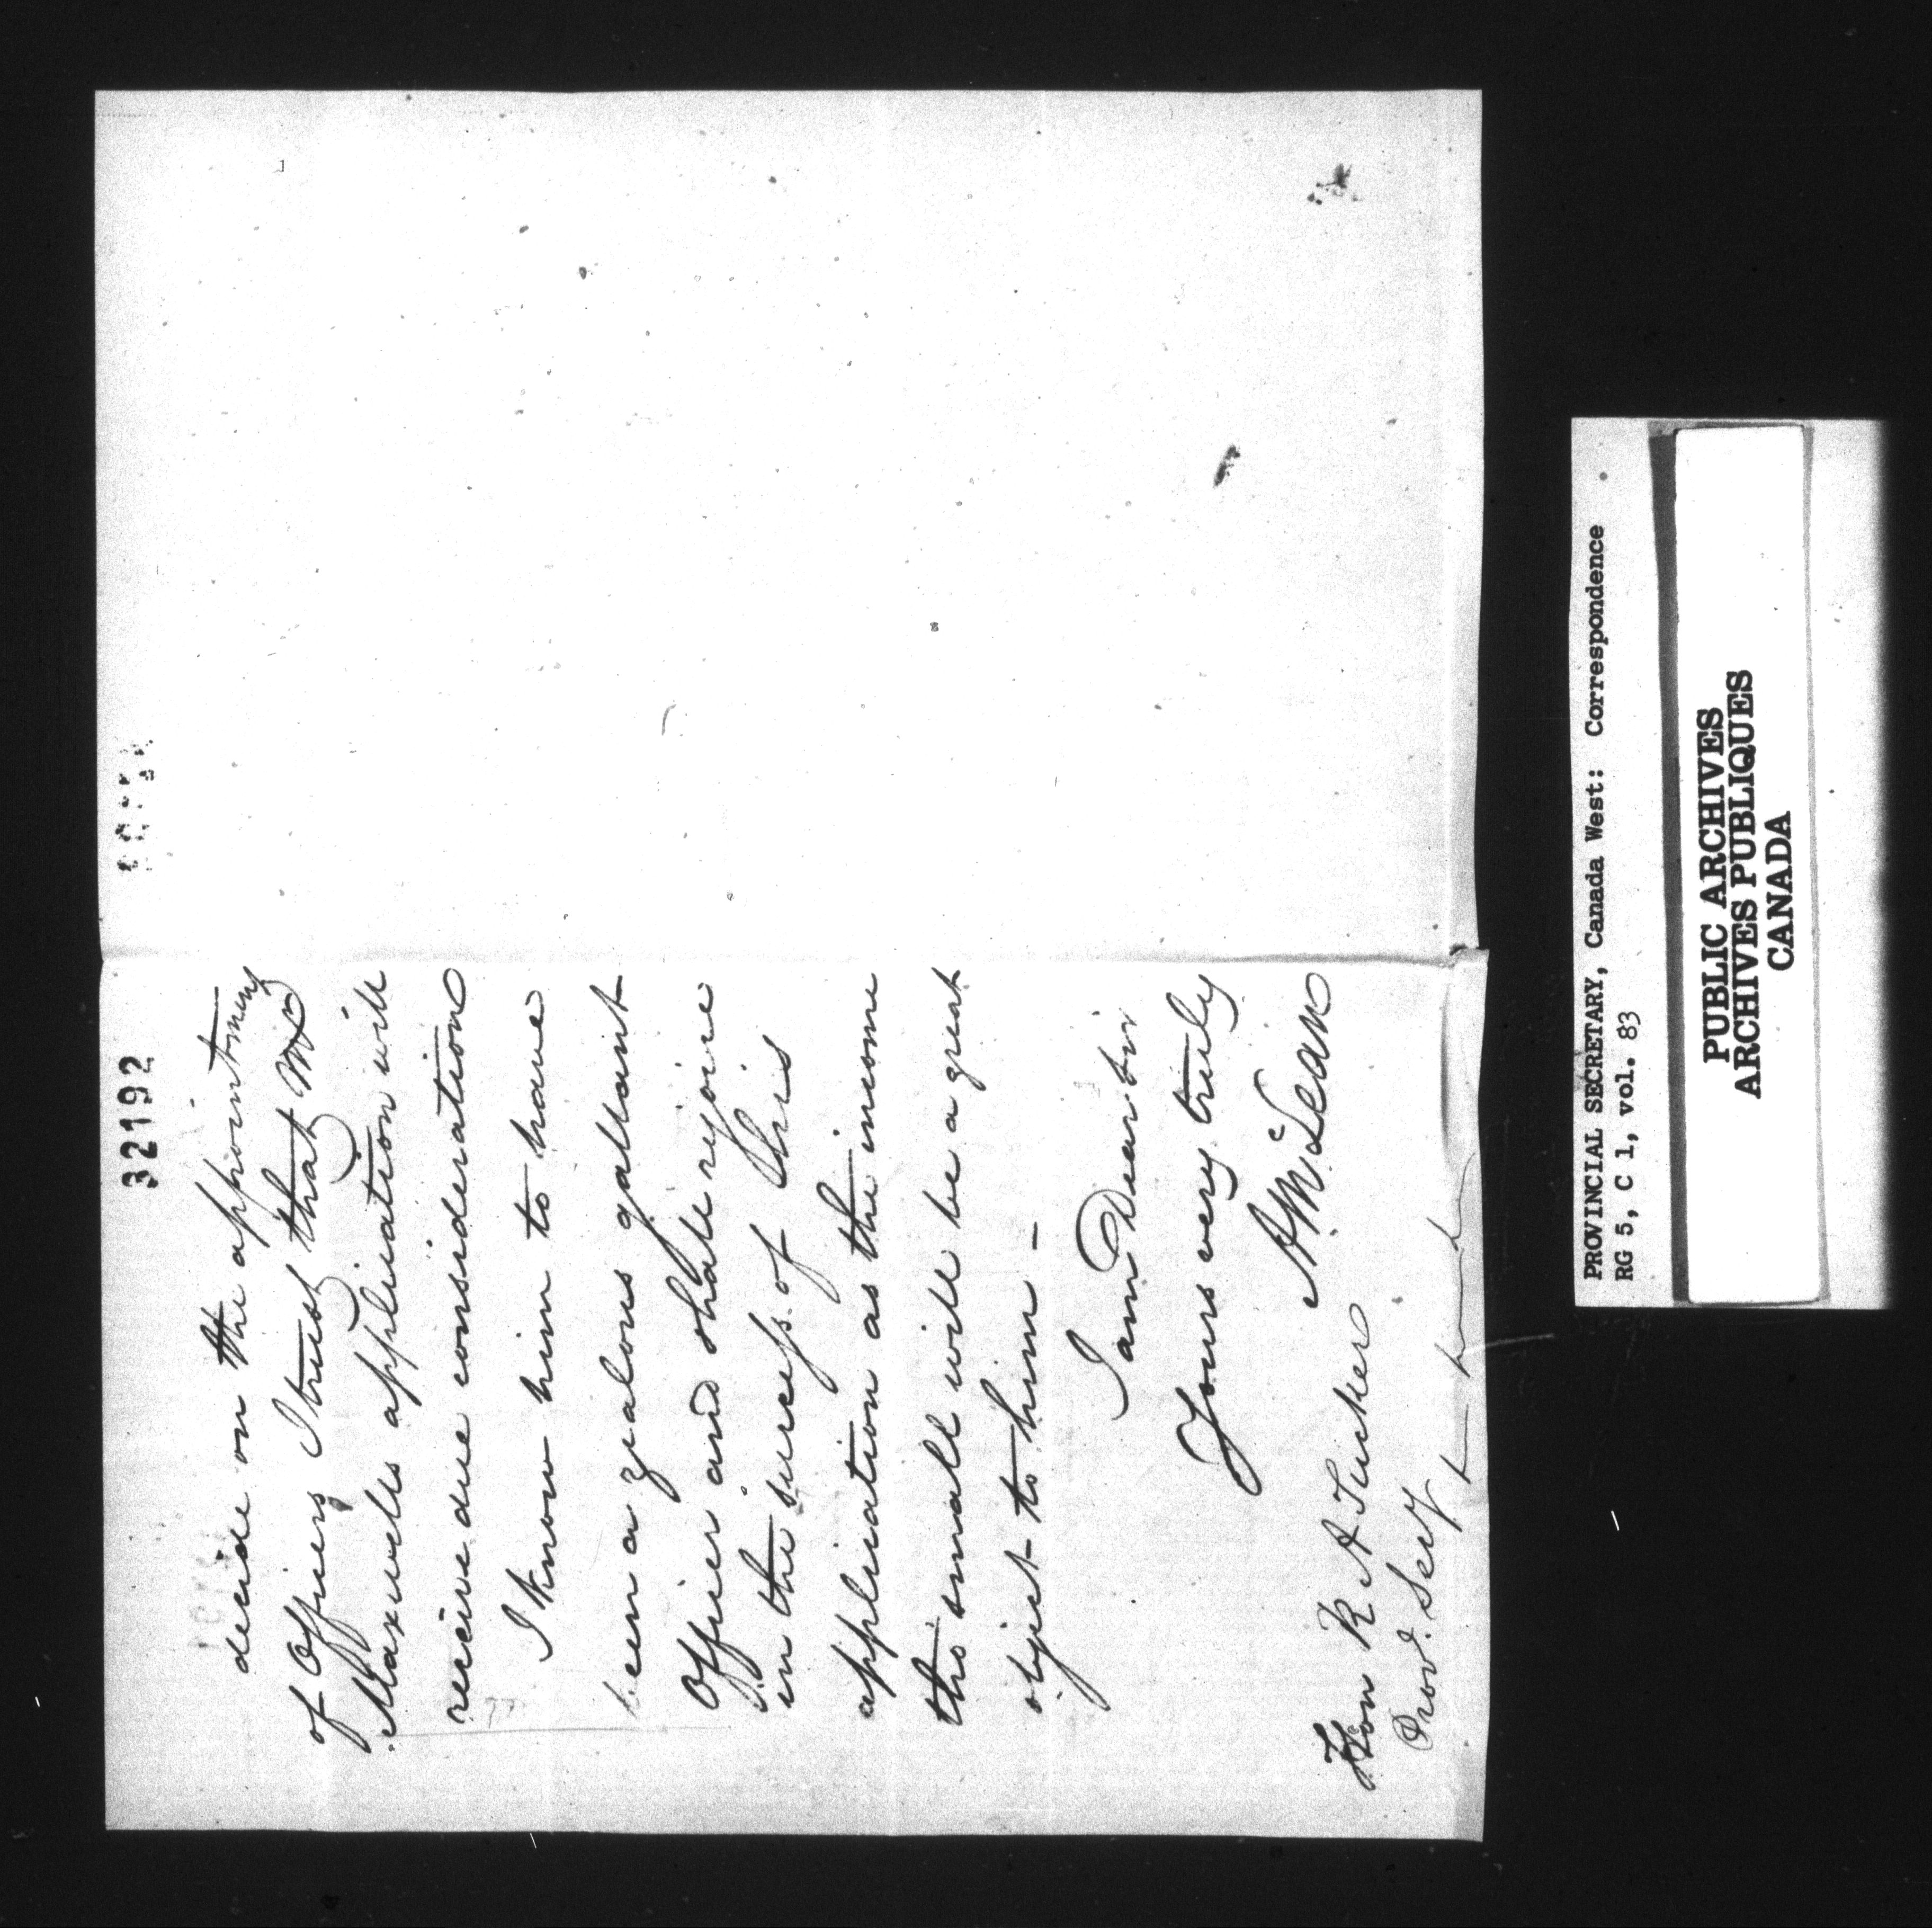 32192
decide on the appointment
of Officers I trust that Mr
Maxwells application will
receive due consideration
I know him to have
been a zealous gallant
Officer and shall rejoice
in the success of this
application as the income
tho small will be a great
object to him —
I am Dear Sir
Yours very truly
A McLean
Hon R A Tucker
Prov. Secy
PROVINCIAL SECRETARY, Canada West: Correspondence
RG 5, C 1, vol. 83
PUBLIC ARCHIVES
ARCHIVES PUBLIQUES
CANADA